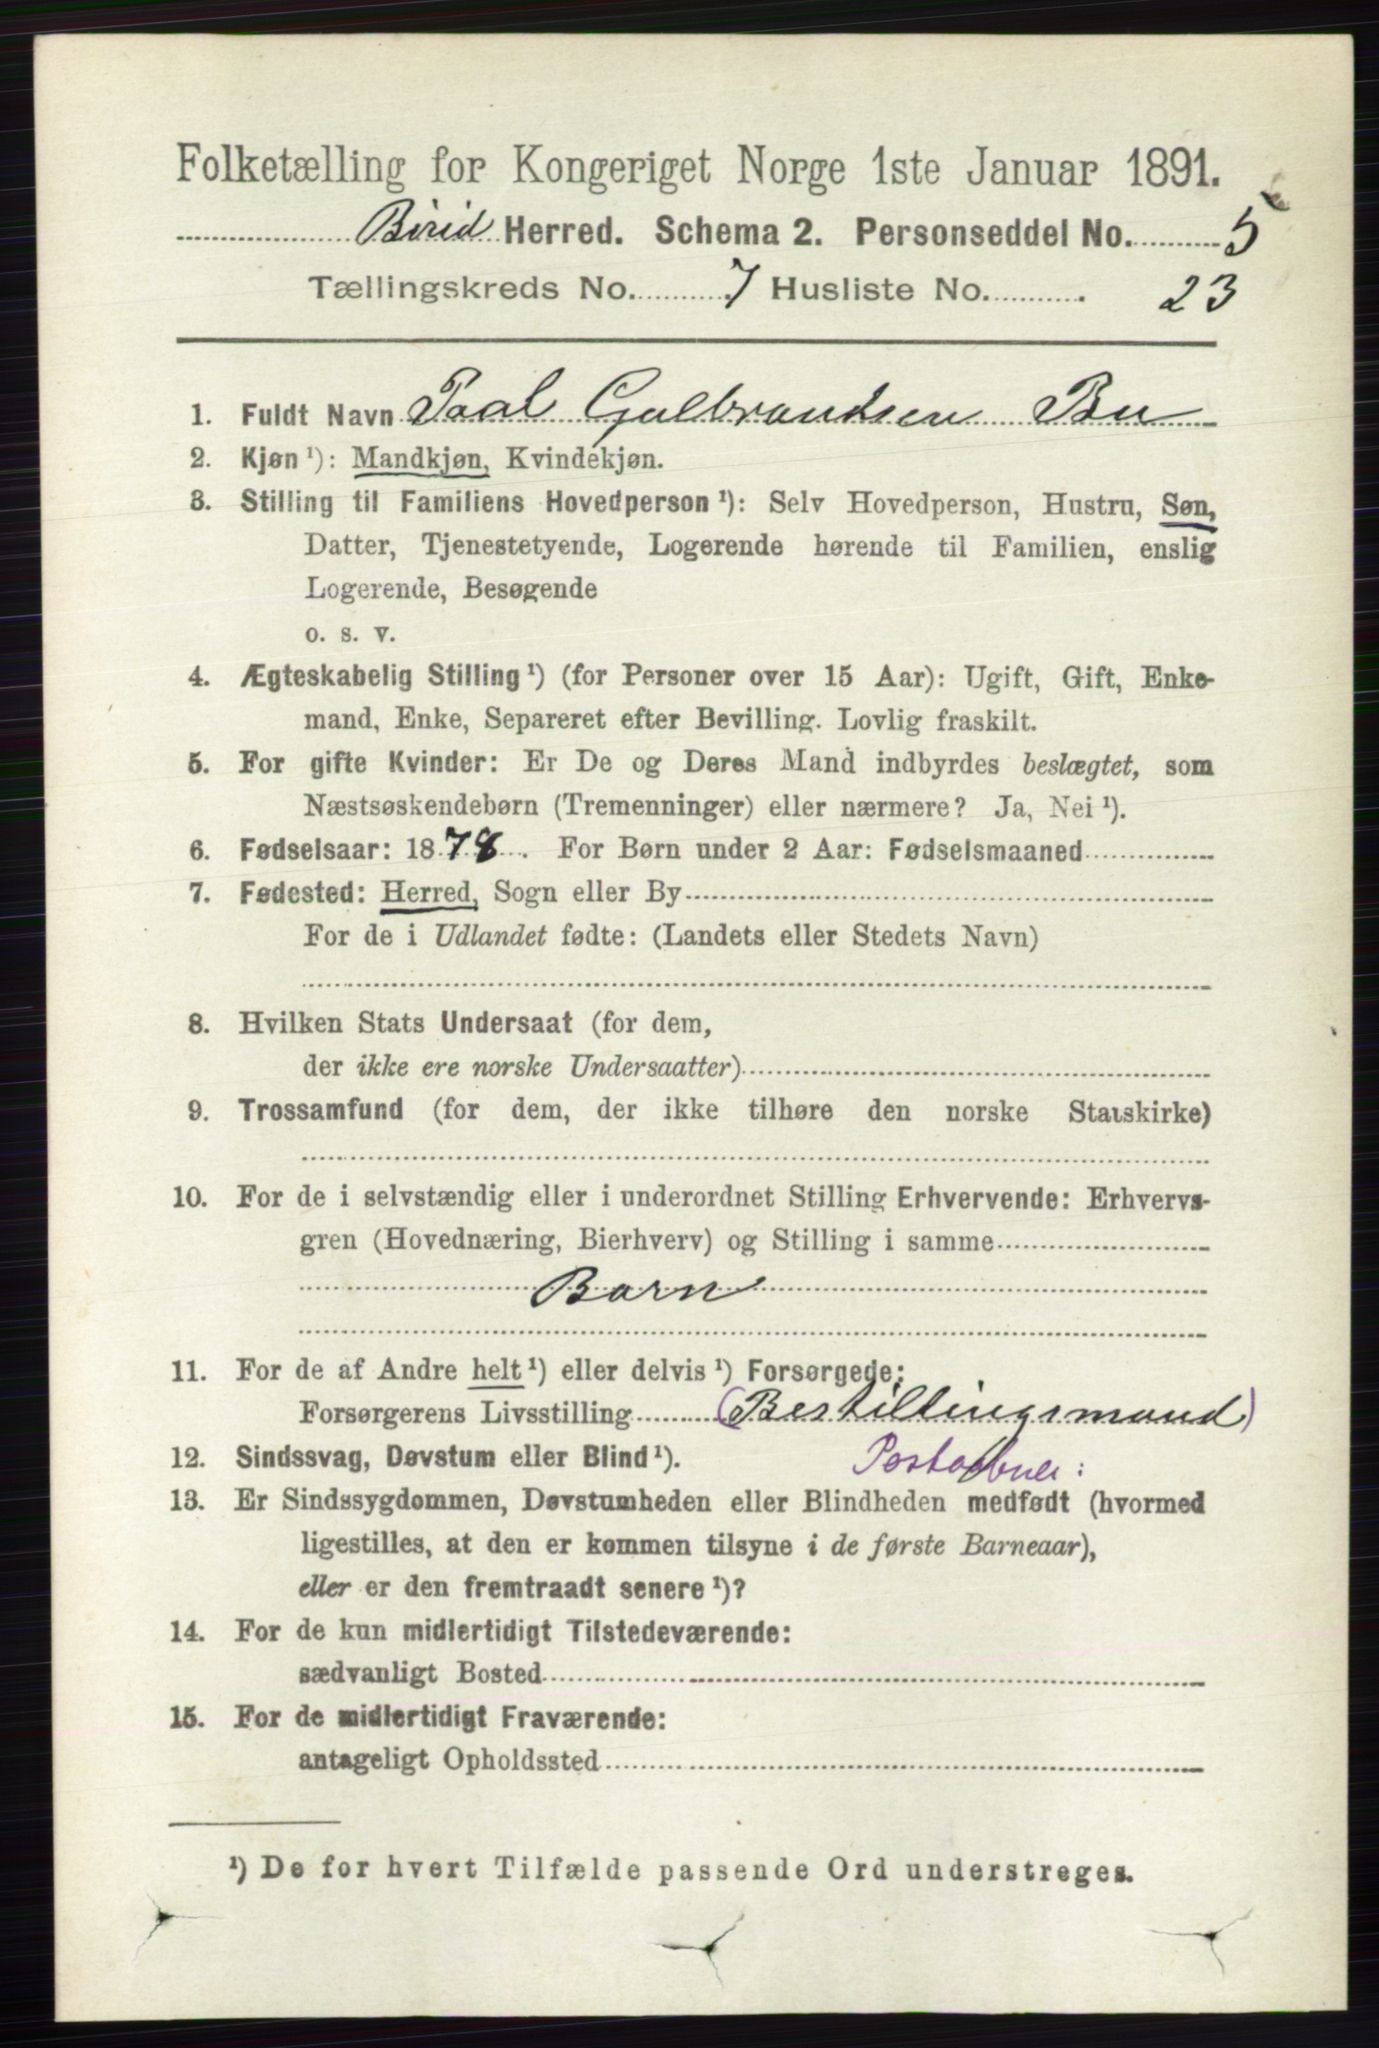 Folketælling for Kongeriget Norge 1ste Januar 1891.
Birid Herred. Schema 2. Personseddel No. 5
Tællingskreds No. 7 Husliste No. 23
1. Fuldt Navn Paal Gulbrandsen Bu
2. Kjøn ¹): Mandkjøn, Kvindekjøn.
3. Stilling til Familiens Hovedperson ¹): Selv Hovedperson, Hustru, Søn,
Datter, Tjenestetyende, Logerende hørende til Familien, enslig
Logerende, Besøgende
o. s. v.
4. Ægteskabelig Stilling ¹) (for Personer over 15 Aar): Ugift, Gift, Enke-
mand, Enke, Separeret efter Bevilling. Lovlig fraskilt.
5. For gifte Kvinder: Er De og Deres Mand indbyrdes beslægtet, som
Næstsøskendebørn (Tremenninger) eller nærmere? Ja, Nei ¹).
6. Fødselsaar: 1878. For Børn under 2 Aar: Fødselsmaaned
7. Fødested: Herred, Sogn eller By
For de i Udlandet fødte: (Landets eller Stedets Navn)
8. Hvilken Stats Undersaat (for dem,
der ikke ere norske Undersaatter)
9. Trossamfund (for dem, der ikke tilhøre den norske Statskirke)
10. For de i selvstændig eller i underordnet Stilling Erhvervende: Erhvervs-
gren (Hovednæring, Bierhverv) og Stilling i samme
Barn
11. For de af Andre helt ¹) eller delvis ¹) Forsørgede:
Forsørgerens Livsstilling (Bestillingsmand)
12. Sindssvag, Døvstum eller Blind ¹). Postaabner:
13. Er Sindssygdommen, Døvstumheden eller Blindheden medfødt (hvormed
ligestilles, at den er kommen tilsyne i de første Barneaar),
eller er den fremtraadt senere ¹)?
14. For de kun midlertidigt Tilstedeværende:
sædvanligt Bosted
15. For de midlertidigt Fraværende:
antageligt Opholdssted
¹) De for hvert Tilfælde passende Ord understreges.